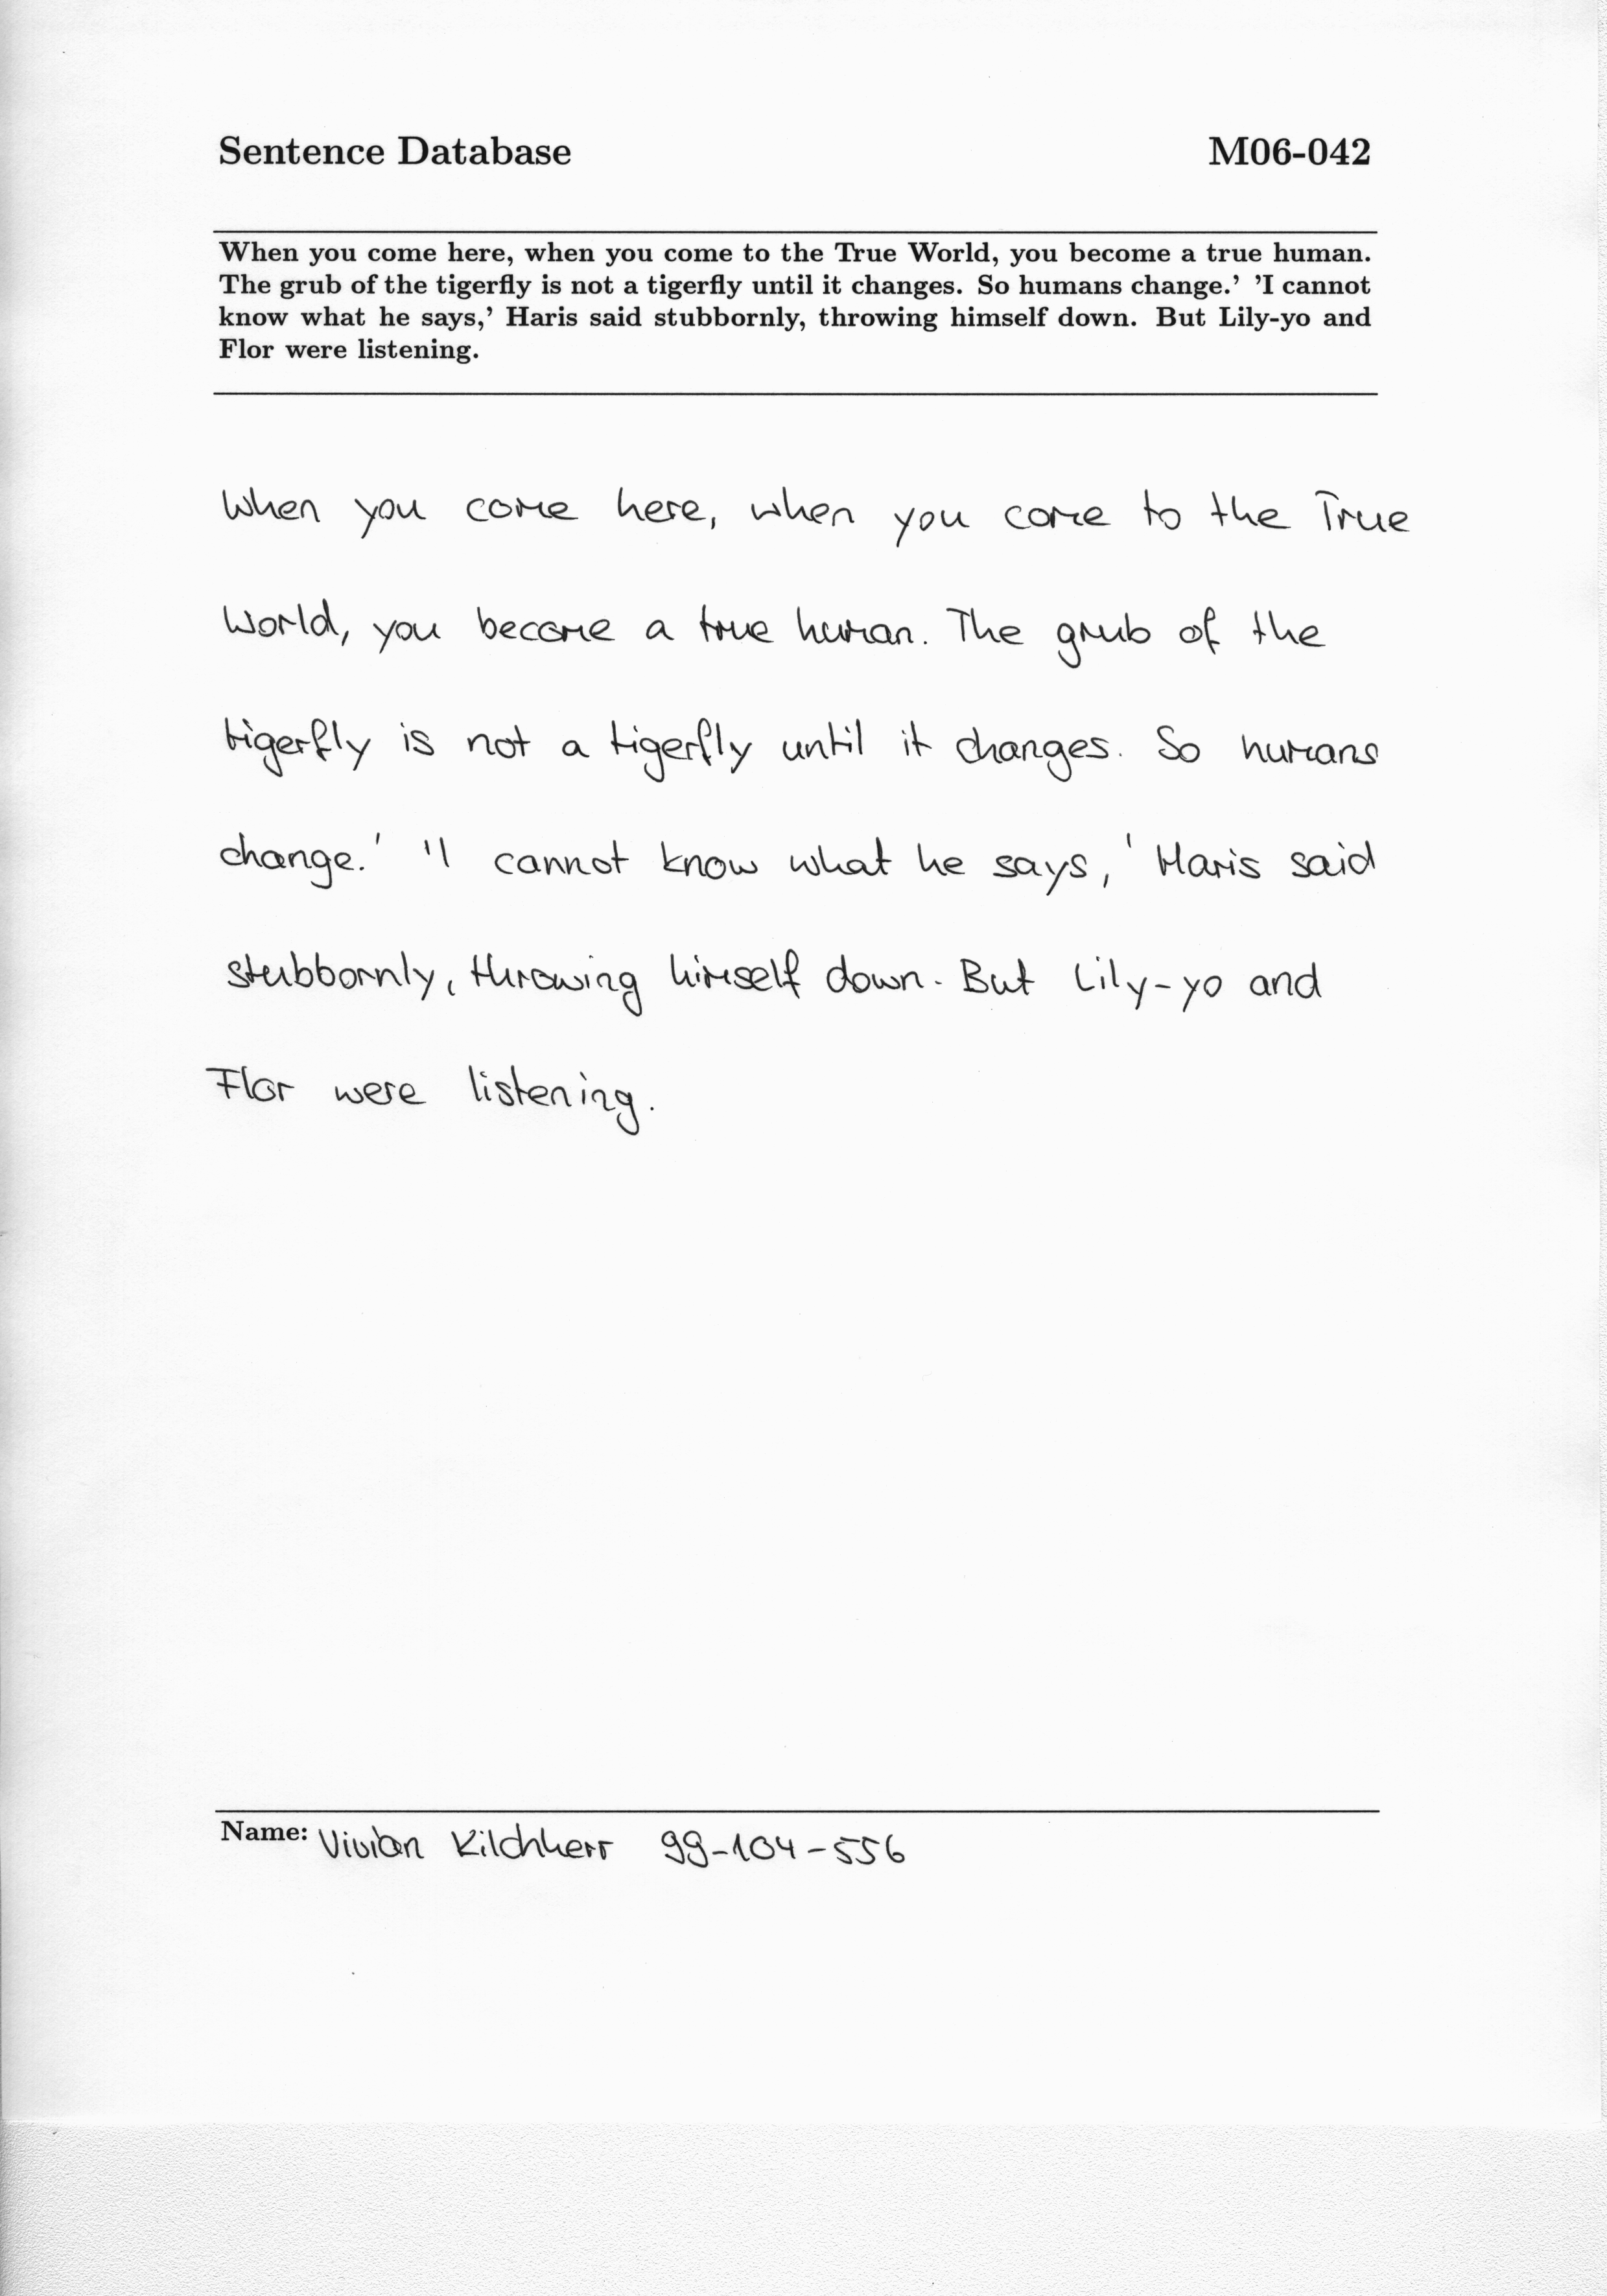 Sentence Database M06-042
When you come here, when you come to the True World, you become a true human.
The grub of the tigerfly is not a tigerfly until it changes. So humans change.' 'I cannot
know what he says,' Haris said stubbornly, throwing himself down. But Lily-yo and
Flor were listening.
When you come here, when you come to the True
World, you become a true human. The grub of the
tigerfly is not a tigerfly until it changes. So humans
change.' 'I cannot know what he says,' Haris said
stubbornly, throwing himself down. But Lily-yo and
Flor were listening.
Name: Vivian Kilchherr 99-104-556